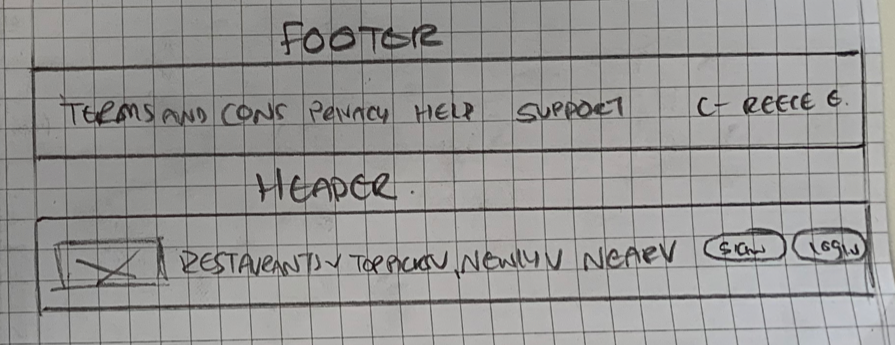 FOOTER
TERMS AND CONS PRIVACY HELP SUPPORT C- REECE G.
HEADER.
RESTAURANTS V TOP PICKS V NEWLY V NEAR V SIGN LOGIN